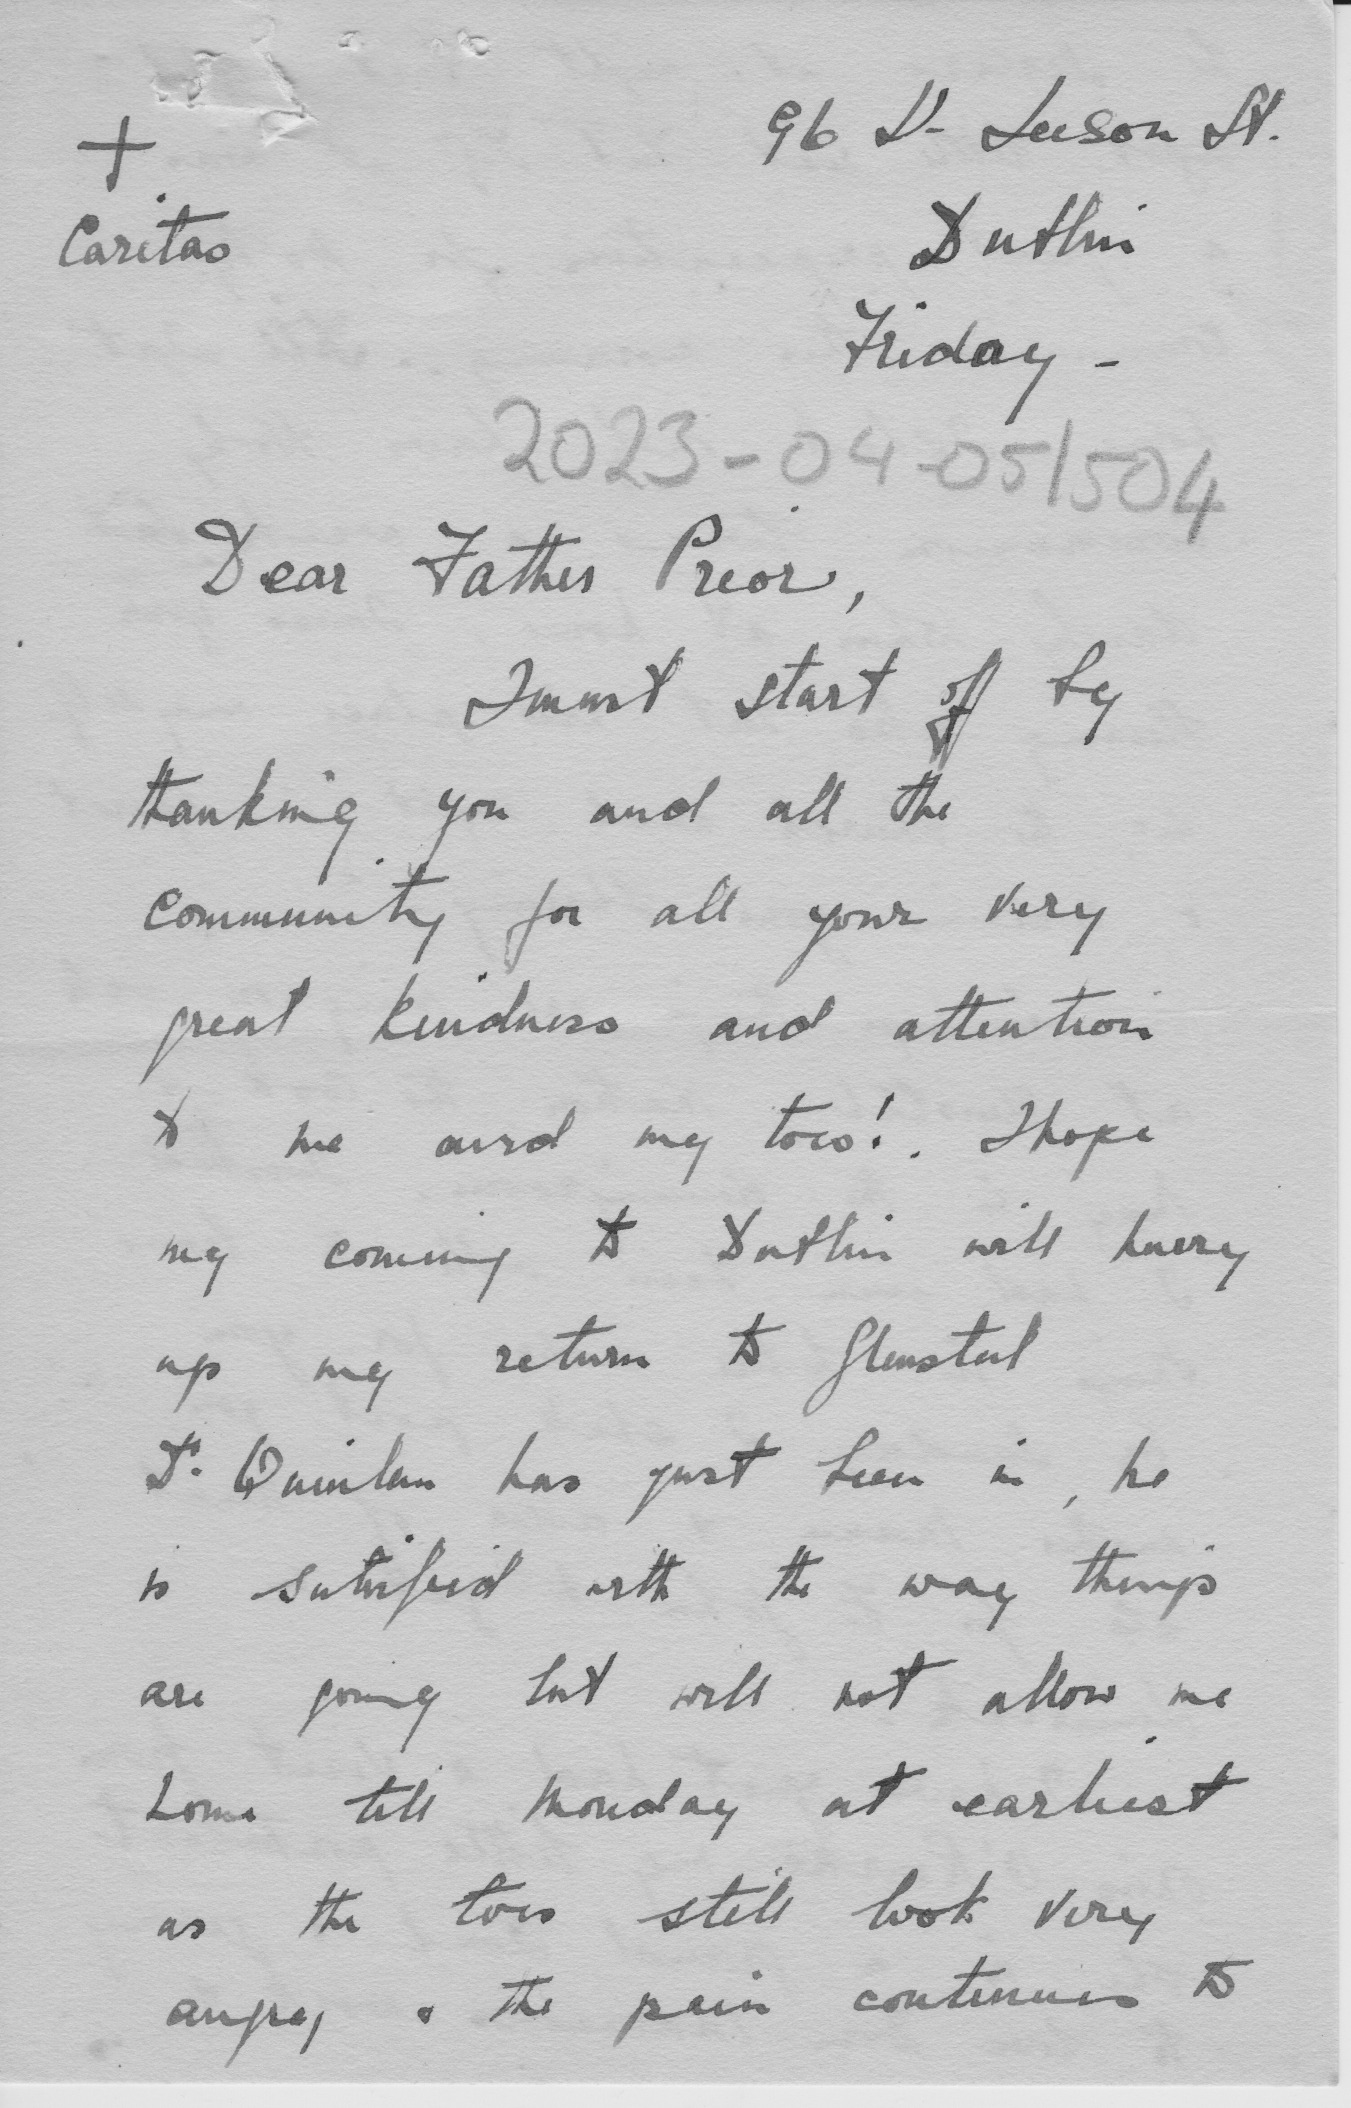 +
Caritas
96 Lr. Leeson St.
Dublin
Friday -
2023-04-05/504
Dear Father Prior,
I must start off by
thanking you and all the
community for all your very
great kindness and attention
to me and my toes!. I hope
my coming to Dublin will hurry
up my return to Glenstal
Dr. Quinlan has just been in, he
is satisfied with the way things
are going but will not allow me
home till Monday at earliest
as the toes still look very
angry & the pain continues to